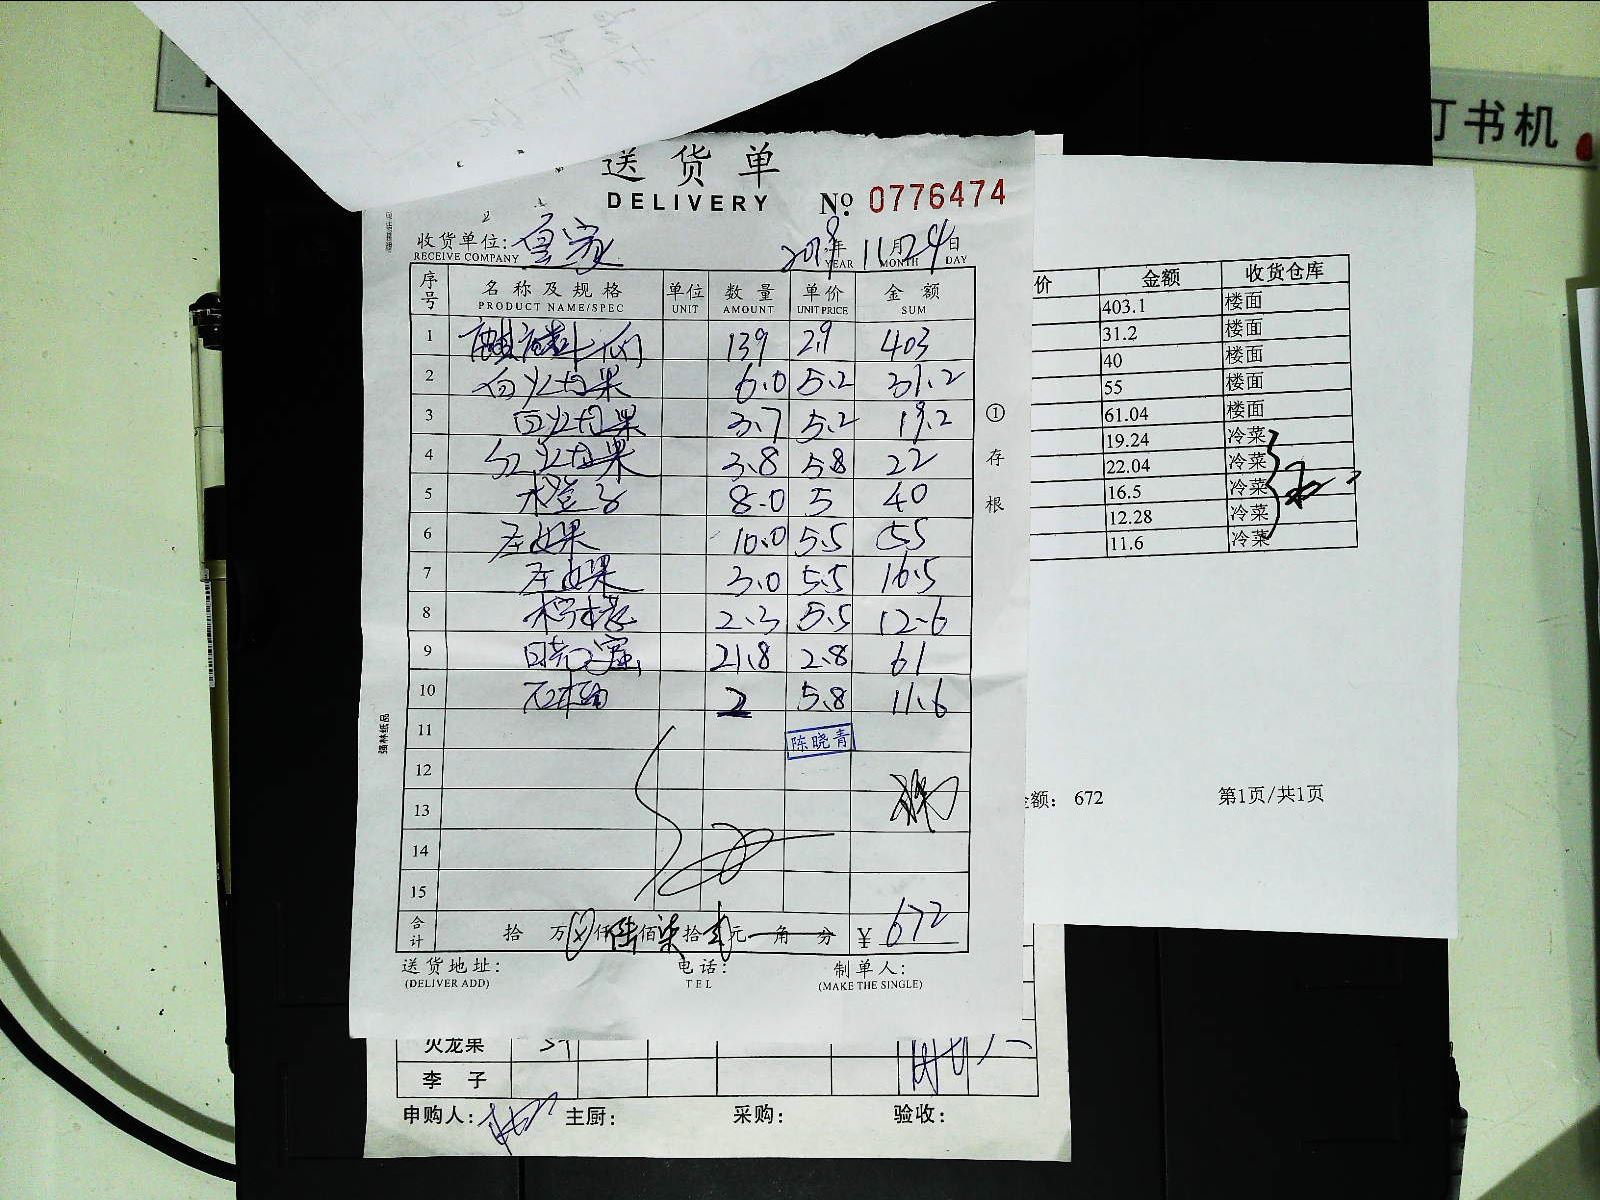 订书机
送货单
DELIVERY
№ 0776474
收货单位: 皇家 2019年 11月 24日
RECEIVE COMPANY YEAR MONTH DAY
序号 名称及规格 单位 数量 单价 金额
PRODUCT NAME/SPEC UNIT AMOUNT UNIT PRICE SUM
1 139 2.9 403
2 白火龙果 6.0 5.2 31.2
3 白火龙果 3.7 5.2 19.2
4 红火龙果 3.8 5.8 22
5 水橙子 8.0 5 40
6 圣女果 10.0 5.5 55
7 圣女果 3.0 5.5 16.5
8 柠檬 2.3 5.5 12.6
9 21.8 2.8 61
10 西柚 2 5.8 11.6
11 陈晓青
12
13
14
15
合计 拾 万 ⊗ 仟 陆 佰 柒 拾 贰 元 角 分 ¥ 672
送货地址: 电话: 制单人:
(DELIVER ADD) TEL (MAKE THE SINGLE)
①存根
强林纸品
价 金额 收货仓库
403.1 楼面
31.2 楼面
40 楼面
55 楼面
61.04 楼面
19.24 冷菜
22.04 冷菜
16.5 冷菜
12.28 冷菜
11.6 冷菜
金额: 672 第1页/共1页
火龙果
李子
申购人: 主厨: 采购: 验收: